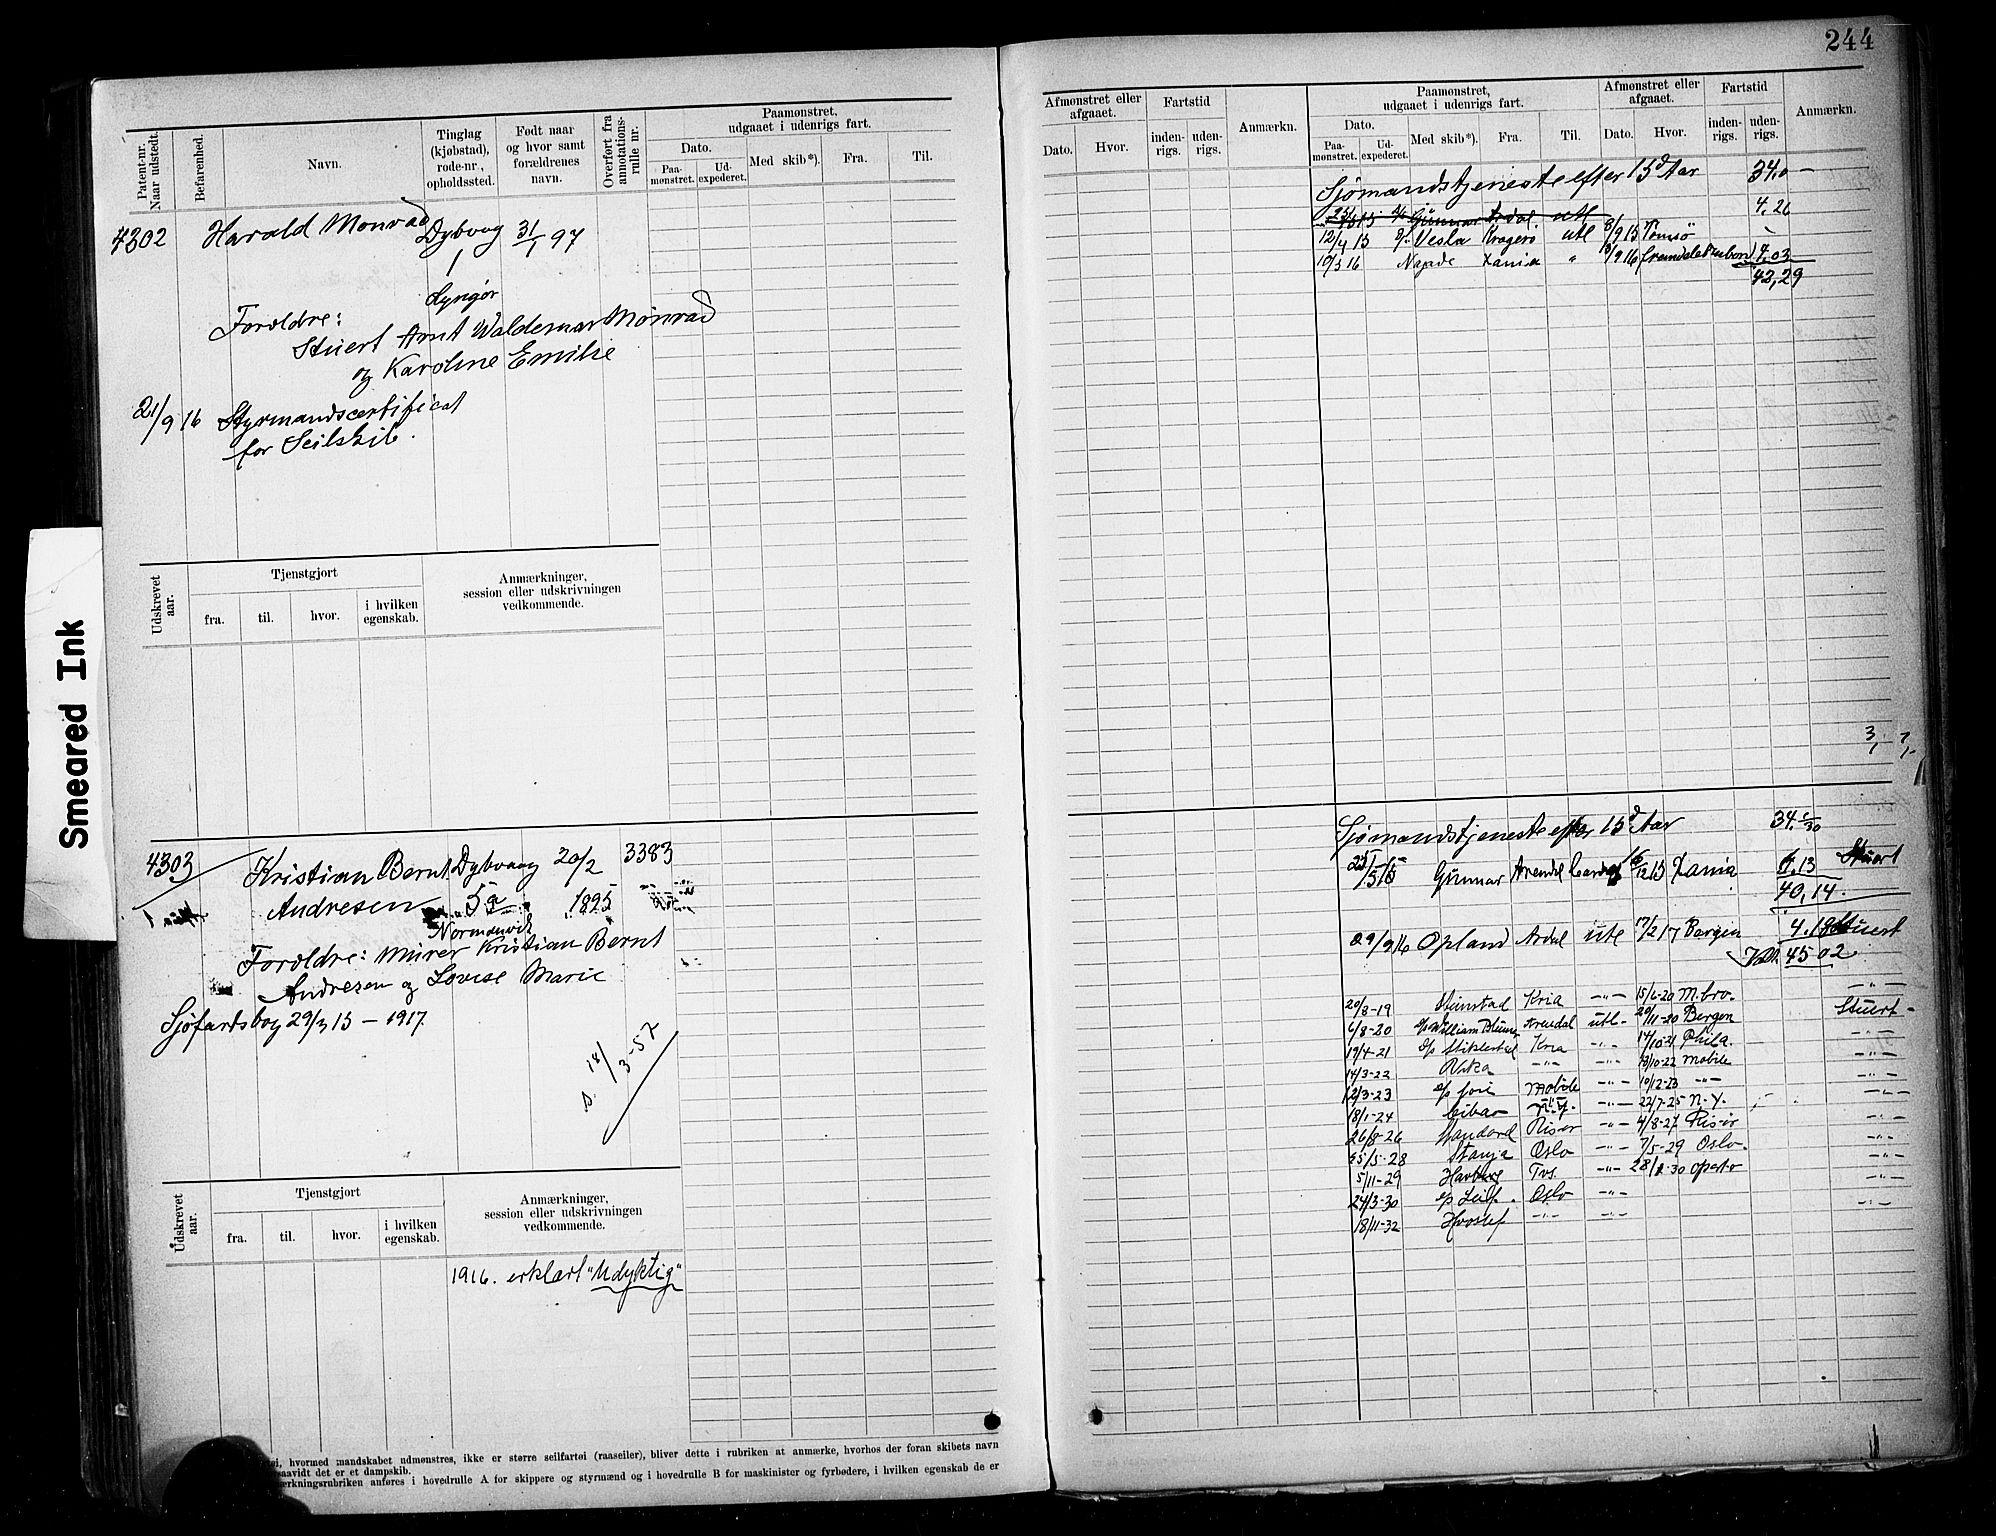 244
Patent-nr. Naar udstedt.
Befarenhed.
Navn.
Tinglag (kjøbstad), rode-nr., opholdssted.
Født naar og hvor samt forældrenes navn.
Overført fra annotations-rulle nr.
Paamønstret, udgaaet i udenrigs fart.
Dato.
Paa-mønstret.
Ud-expederet.
Med skib*).
Fra.
Til.
4302 Harald Monrad Dybvag 31/1 97
Lyngør
Forældre:
Stuert Arnt Waldemar Monrad
og Karoline Emilie
21/9 16 Styrmandscertificat
for Seilskib.
Udskrevet aar.
Tjenstgjort
fra. til. hvor. i hvilken egenskab.
Anmærkninger, session eller udskrivningen vedkommende.
Smeared Ink
4303 Kristian Bernt Dybvaag 20/2 3383
Andresen 5a 1895
Normanvik
Forældre: Murer Kristian Bernt
Andresen og Lovise Marie
Sjøfartsbog 29/3 15 – 1917.
18/3-57
Udskrevet aar.
Tjenstgjort
fra. til. hvor. i hvilken egenskab.
Anmærkninger, session eller udskrivningen vedkommende.
1916. erklært "Udyktig"
hvormed mandskabet udmønstres, ikke er større seilfartøi (raaseiler), bliver dette i rubriken at anmærke, hvorhos der foran skibets navn
saavidt det er et dampskib.
anføres i hovedrulle A for skippere og styrmænd og i hovedrulle B for maskinister og fyrbødere, i hvilken egenskab de er
Afmønstret eller afgaaet.
Dato. Hvor.
Fartstid
inden-rigs. uden-rigs.
Anmærkn.
Paamønstret, udgaaet i udenrigs fart.
Dato.
Paa-mønstret. Ud-expederet.
Med skib*). Fra. Til.
Afmønstret eller afgaaet.
Dato. Hvor.
Fartstid
inden-rigs. uden-rigs.
Anmærkn.
Sjømandstjeneste efter 15d Aar 34.0 –
Gunnar Ardal utl 4.26
12/4 15 Vesla Kragerø utl 8/9 15 Tømsø
10/3 16 Najade Xania " /9 16 4.03
42,29
3,
Sjømandstjeneste efter 15d Aar 34.
Gunnar Arendal 15 Xania 6,13 Stuert
40,14.
29/9 16 Opland Ardal utl 17/2 17 Bergen 4.18 Stuert
45 02
20/8-19 Stunstad Kria -"- 15/6-20 M.bro. -"-
6/8-20 William Blumer Arendal utl- 20/11-20 Bergen Stuert -
19/4-21 Stiklestad Kria -"- 14/10-21 Phila. -"-
14/3-22 -"- -"- 13/10-22 Mobile -"-
12/3-23 Mobile -"- 10/12-23 -"- -"-
18/1-24 Cibao N.Y. -"- 22/7-25 N.Y. -"-
26/8-26 Risør -"- 4/8-27 Risør -"-
5-28 Stanja Oslo -"- 7/5-29 Oslo -"-
5/11-29 Tvs. -"- 28/ -30 -"-
24/3-30 Leif. Oslo -"- -"-
18/11-32 Hvoslef -"- -"- -"-